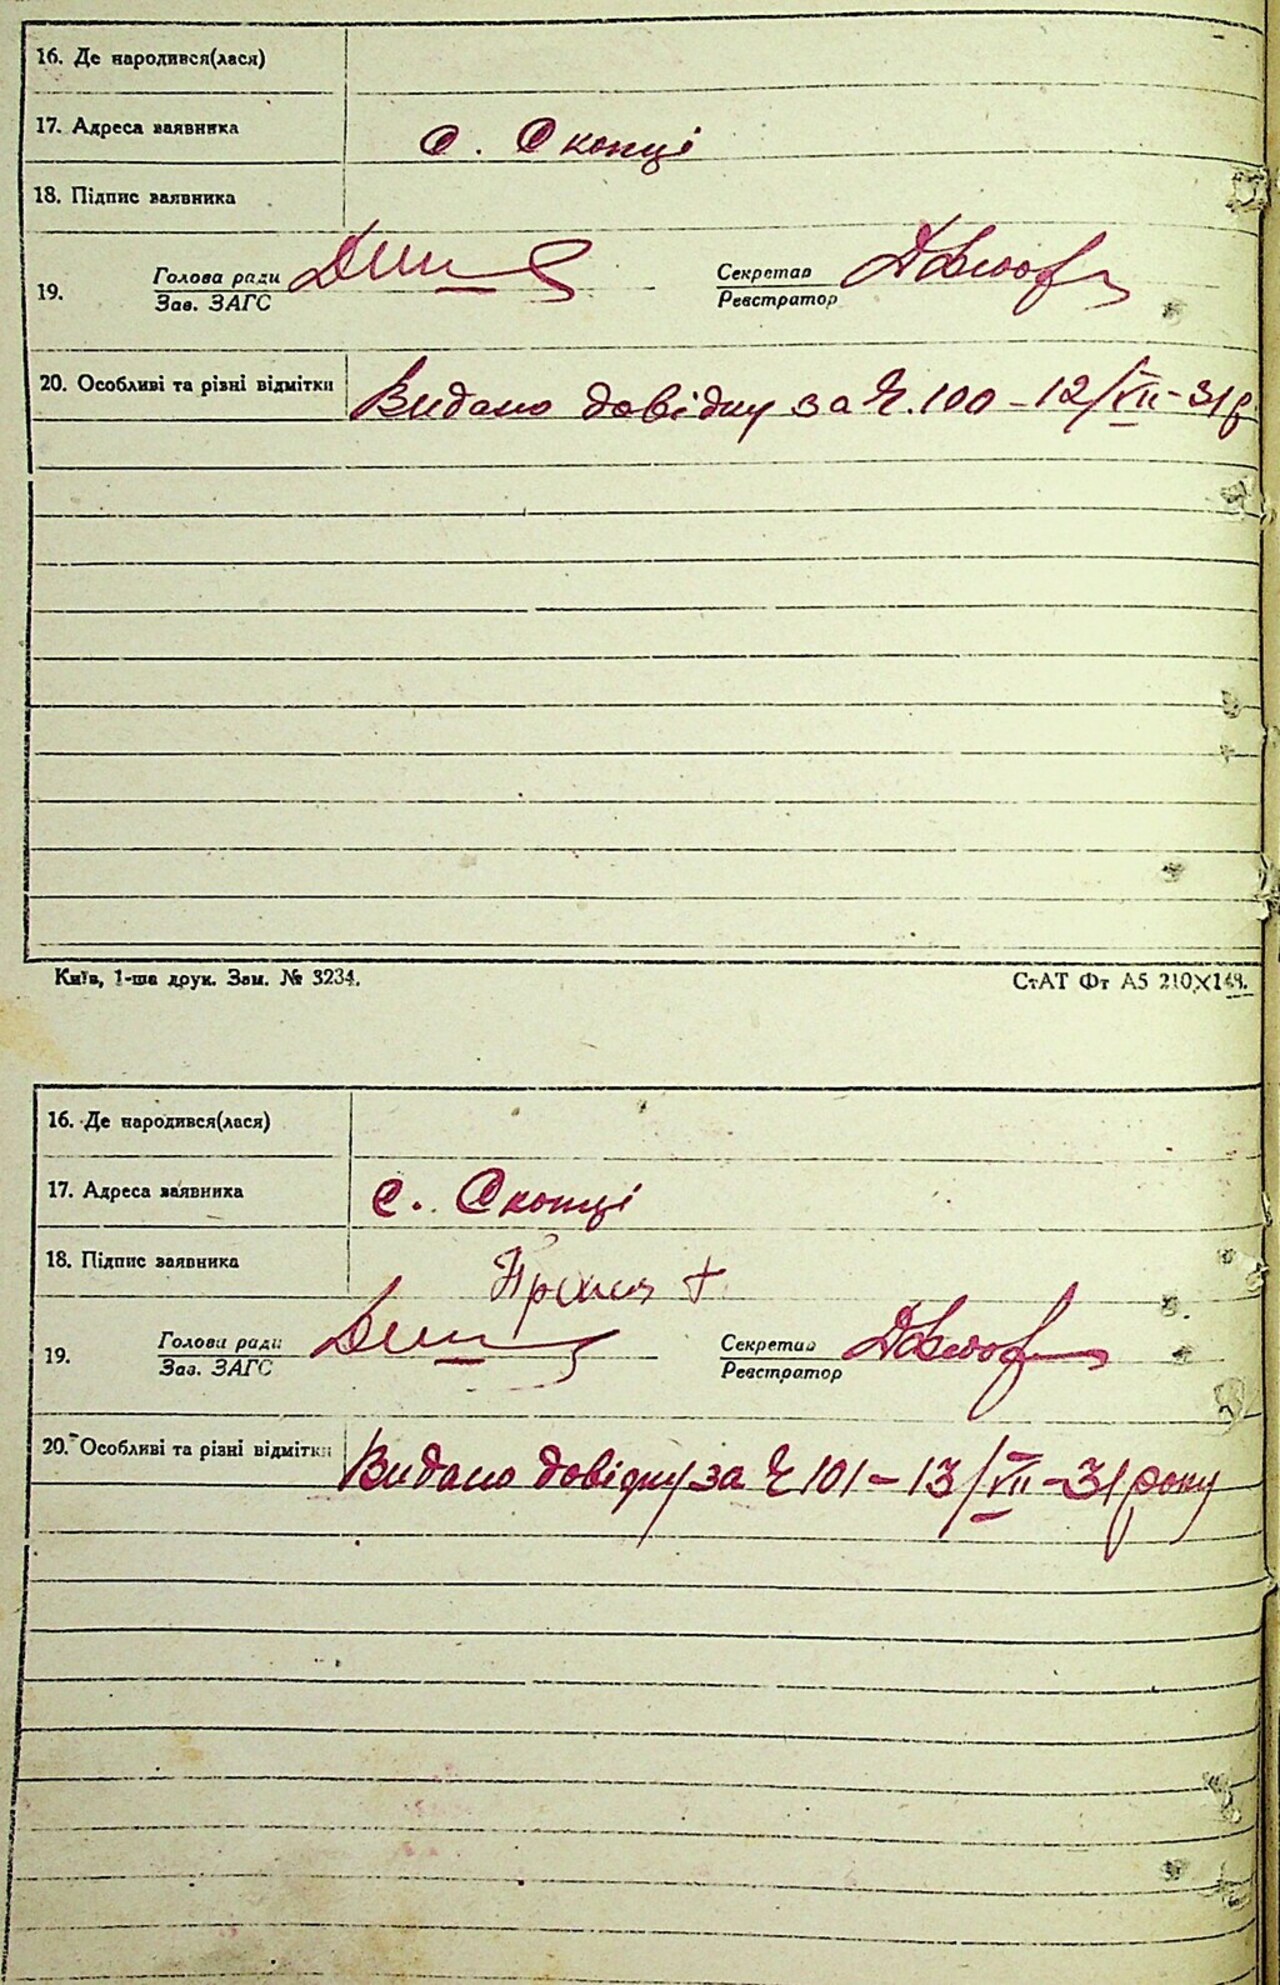 16. Де народився(лася)
17. Адреса заявника с. Скопці
18. Підпис заявника
19. Голова ради Секретар
Зав. ЗАГС Реєстратор
20. Особливі та різні відмітки Видано довідку за Ч. 100 - 12/VII - 31 р
Київ, 1-ша друк. Зам. № 3234. СтАТ Фт А5 210×148.
16. Де народився(лася)
17. Адреса заявника с. Скопці
18. Підпис заявника
19. Голова ради Секретар
Зав. ЗАГС Реєстратор
20. Особливі та різні відмітки Видано довідку за Ч 101 - 13/VII - 31 року